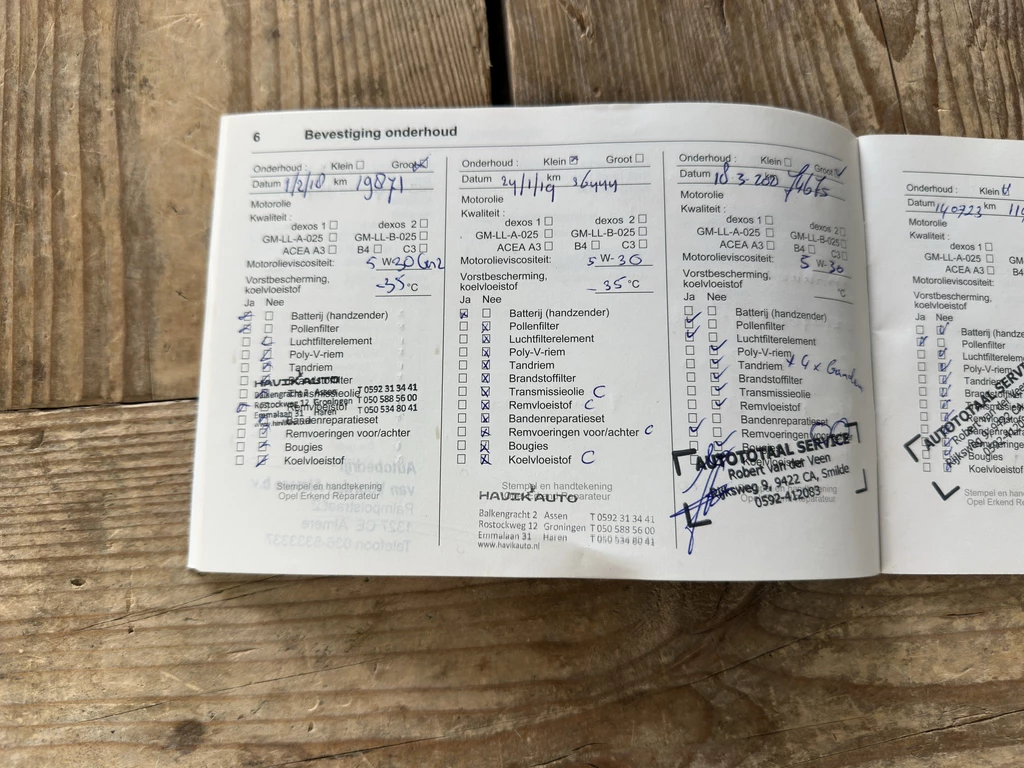 6 Bevestiging onderhoud
Onderhoud : Klein Groot
Datum 1/2/18 km 19871
Motorolie
Kwaliteit :
dexos 1 dexos 2
GM-LL-A-025 GM-LL-B-025
ACEA A3 B4 C3
Motorolieviscositeit: 5 W-30
Vorstbescherming,
koelvloeistof -35 °C
Ja Nee
Batterij (handzender)
Pollenfilter
Luchtfilterelement
Poly-V-riem
Tandriem
HAVIK AUTO
Balkengracht 2 Assen T 0592 31 34 41
Rostockweg 12 Groningen T 050 588 56 00
Emmalaan 31 Haren T 050 534 80 41
Transmissieolie
Remvloeistof
Bandenreparatieset
Remvoeringen voor/achter
Bougies
Koelvloeistof
Stempel en handtekening
Opel Erkend Reparateur
Onderhoud : Klein Groot
Datum 24/1/19 km 36444
Motorolie
Kwaliteit :
dexos 1 dexos 2
GM-LL-A-025 GM-LL-B-025
ACEA A3 B4 C3
Motorolieviscositeit: 5 W-30
Vorstbescherming,
koelvloeistof -35 °C
Ja Nee
Batterij (handzender)
Pollenfilter
Luchtfilterelement
Poly-V-riem
Tandriem
Brandstoffilter
Transmissieolie C
Remvloeistof C
Bandenreparatieset
Remvoeringen voor/achter C
Bougies
Koelvloeistof C
Stempel en handtekening
Opel Erkend Reparateur
HAVIK AUTO
Balkengracht 2 Assen T 0592 31 34 41
Rostockweg 12 Groningen T 050 588 56 00
Emmalaan 31 Haren T 050 534 80 41
www.havikauto.nl
Onderhoud : Klein Groot
Datum
Motorolie
Kwaliteit :
dexos 1 dexos 2
GM-LL-A-025 GM-LL-B-025
ACEA A3 B4 C3
Motorolieviscositeit: 5 W-30
Vorstbescherming,
koelvloeistof °C
Ja Nee
Batterij (handzender)
Pollenfilter
Luchtfilterelement
Poly-V-riem
Tandriem
Brandstoffilter
Transmissieolie
Remvloeistof
Bandenreparatieset
Remvoeringen
AUTOTOTAAL SERVICE
Robert van der Veen
Rijksweg 9, 9422 CA, Smilde
0592-412083
Onderhoud : Klein
Datum 140723 km
Motorolie
Kwaliteit :
dexos 1
GM-LL-A-025
ACEA A3
Motorolieviscositeit:
Vorstbescherming,
koelvloeistof
Ja Nee
Batterij (handz
Pollenfilter
Luchtfilterelem
Poly-V-riem
Stempel en han
Opel Erkend Rep